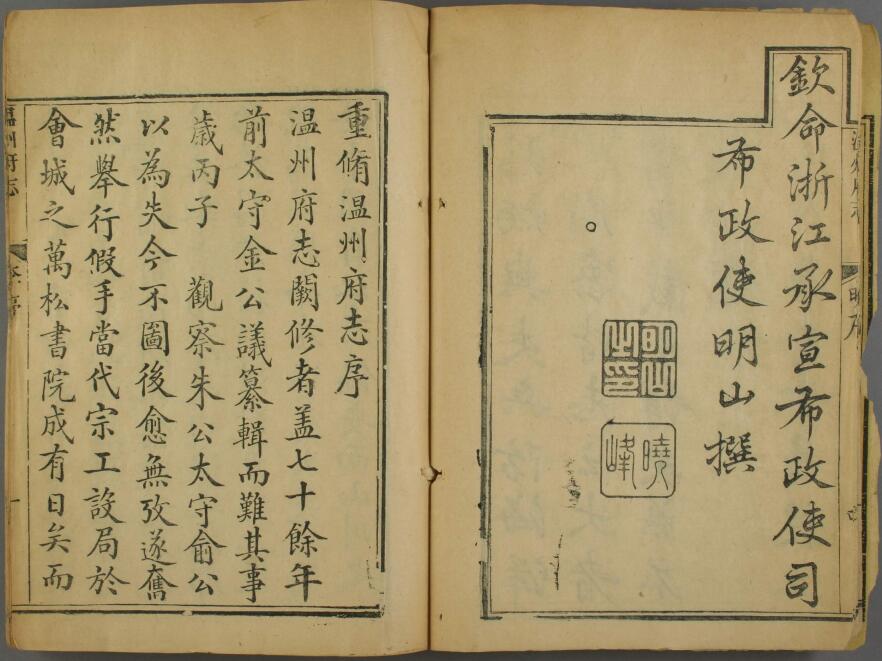 欽命浙江承宣布政使司
布政使明山撰
明山之印
曉峰
明序
重脩温州府志序
温州府志闕修者盖七十餘年
前太守金公議纂輯而難其事
歳丙子 觀察朱公太守俞公
以為失今不圖後愈無攷遂奮
然舉行假手當代宗工設局於
會城之萬松書院成有日矣而
温州府志
一